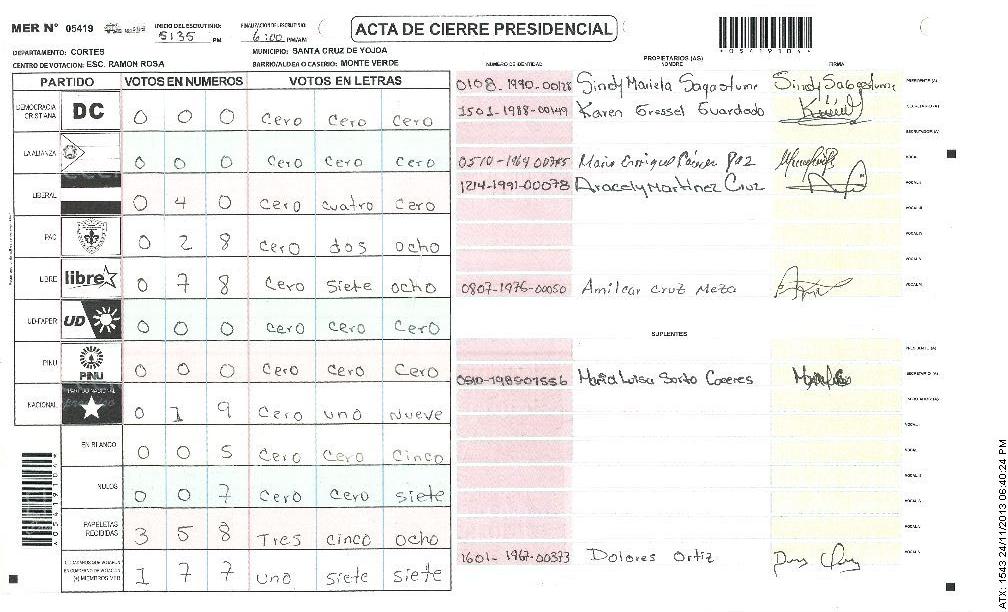 MER N° 05419
INICIO DEL ESCRUTINIO: 5:35 PM
FINALIZACION DEL ESCRUTINIO: 6:00 PM/AM
ACTA DE CIERRE PRESIDENCIAL
DEPARTAMENTO: CORTES
MUNICIPIO: SANTA CRUZ DE YOJOA
CENTRO DE VOTACION: ESC. RAMON ROSA
BARRIO/ALDEA O CASERIO: MONTE VERDE
PARTIDO VOTOS EN NUMEROS VOTOS EN LETRAS
DEMOCRACIA CRISTIANA DC 0 0 0 Cero Cero Cero
LA ALIANZA 0 0 0 Cero Cero Cero
LIBERAL 0 4 0 Cero cuatro Cero
PAC 0 2 8 Cero dos ocho
LIBRE libre 0 7 8 Cero Siete ocho
UD-FAPER UD 0 0 0 Cero Cero Cero
PINU PINU 0 0 0 Cero Cero Cero
NACIONAL 0 1 9 Cero uno nueve
EN BLANCO 0 0 5 Cero Cero Cinco
NULOS 0 0 7 Cero Cero siete
PAPELETAS RECIBIDAS 3 5 8 Tres cinco ocho
(+) MIEMBROS MER 1 7 7 uno siete siete
PROPIETARIOS (AS)
NUMERO DE IDENTIDAD NOMBRE FIRMA
Sindy Mariela Sagastume Sindy Sagastume PRESIDENTE (A)
1501-1988-00149 Karen Gressel Guardado SECRETARIO (A)
ESCRUTADOR (A)
Mario Enrique Paz VOCAL I
1214-1991-00078 Aracely Martinez Cruz VOCAL II
VOCAL III
VOCAL IV
VOCAL V
0807-1976-00050 Amilcar Cruz Meza VOCAL VI
SUPLENTES
PRESIDENTE (A)
Maria Luisa Sorto Caceres SECRETARIO (A)
ESCRUTADOR (A)
VOCAL I
VOCAL II
VOCAL III
VOCAL IV
VOCAL V
1601-1967-00373 Dolores Ortiz
ATX: 1543 24/11/2013 06:40:24 PM